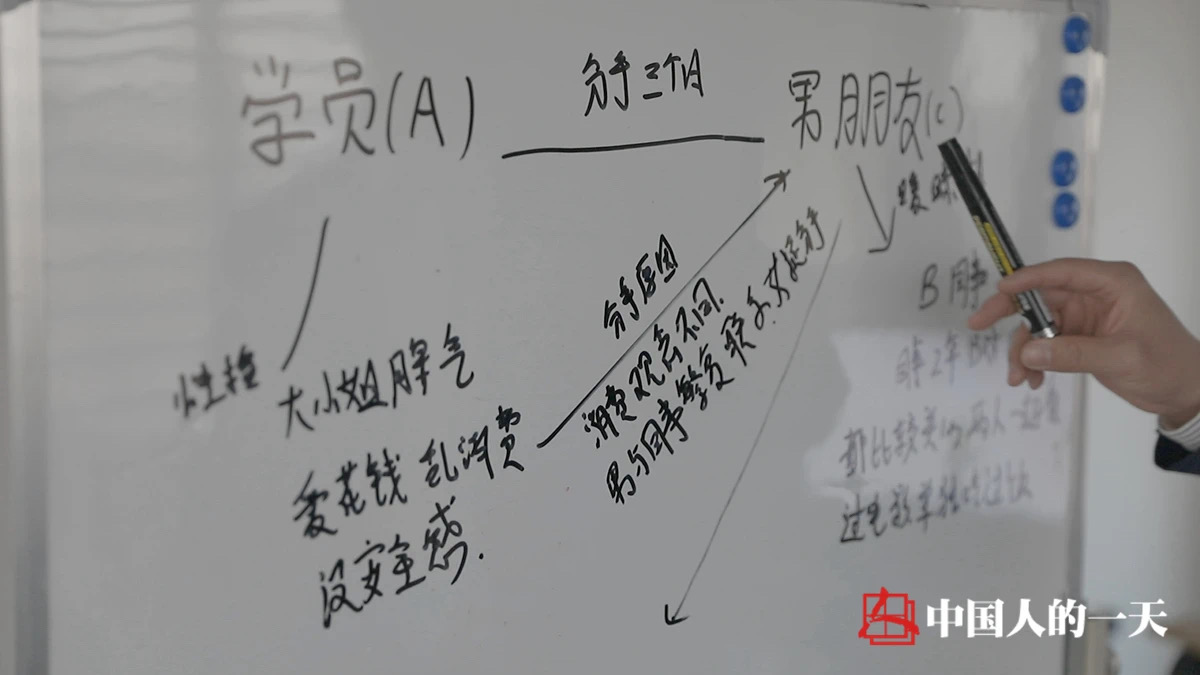 学员(A)
分手三个月
男朋友(C)
暧昧
B 同事
分手原因
消费观念不同.
男与同事繁复联系.女提分手
性格
大小姐脾气
爱花钱 乱消费
没安全感.
同事2年
都比较关心,两人一起
过
中国人的一天